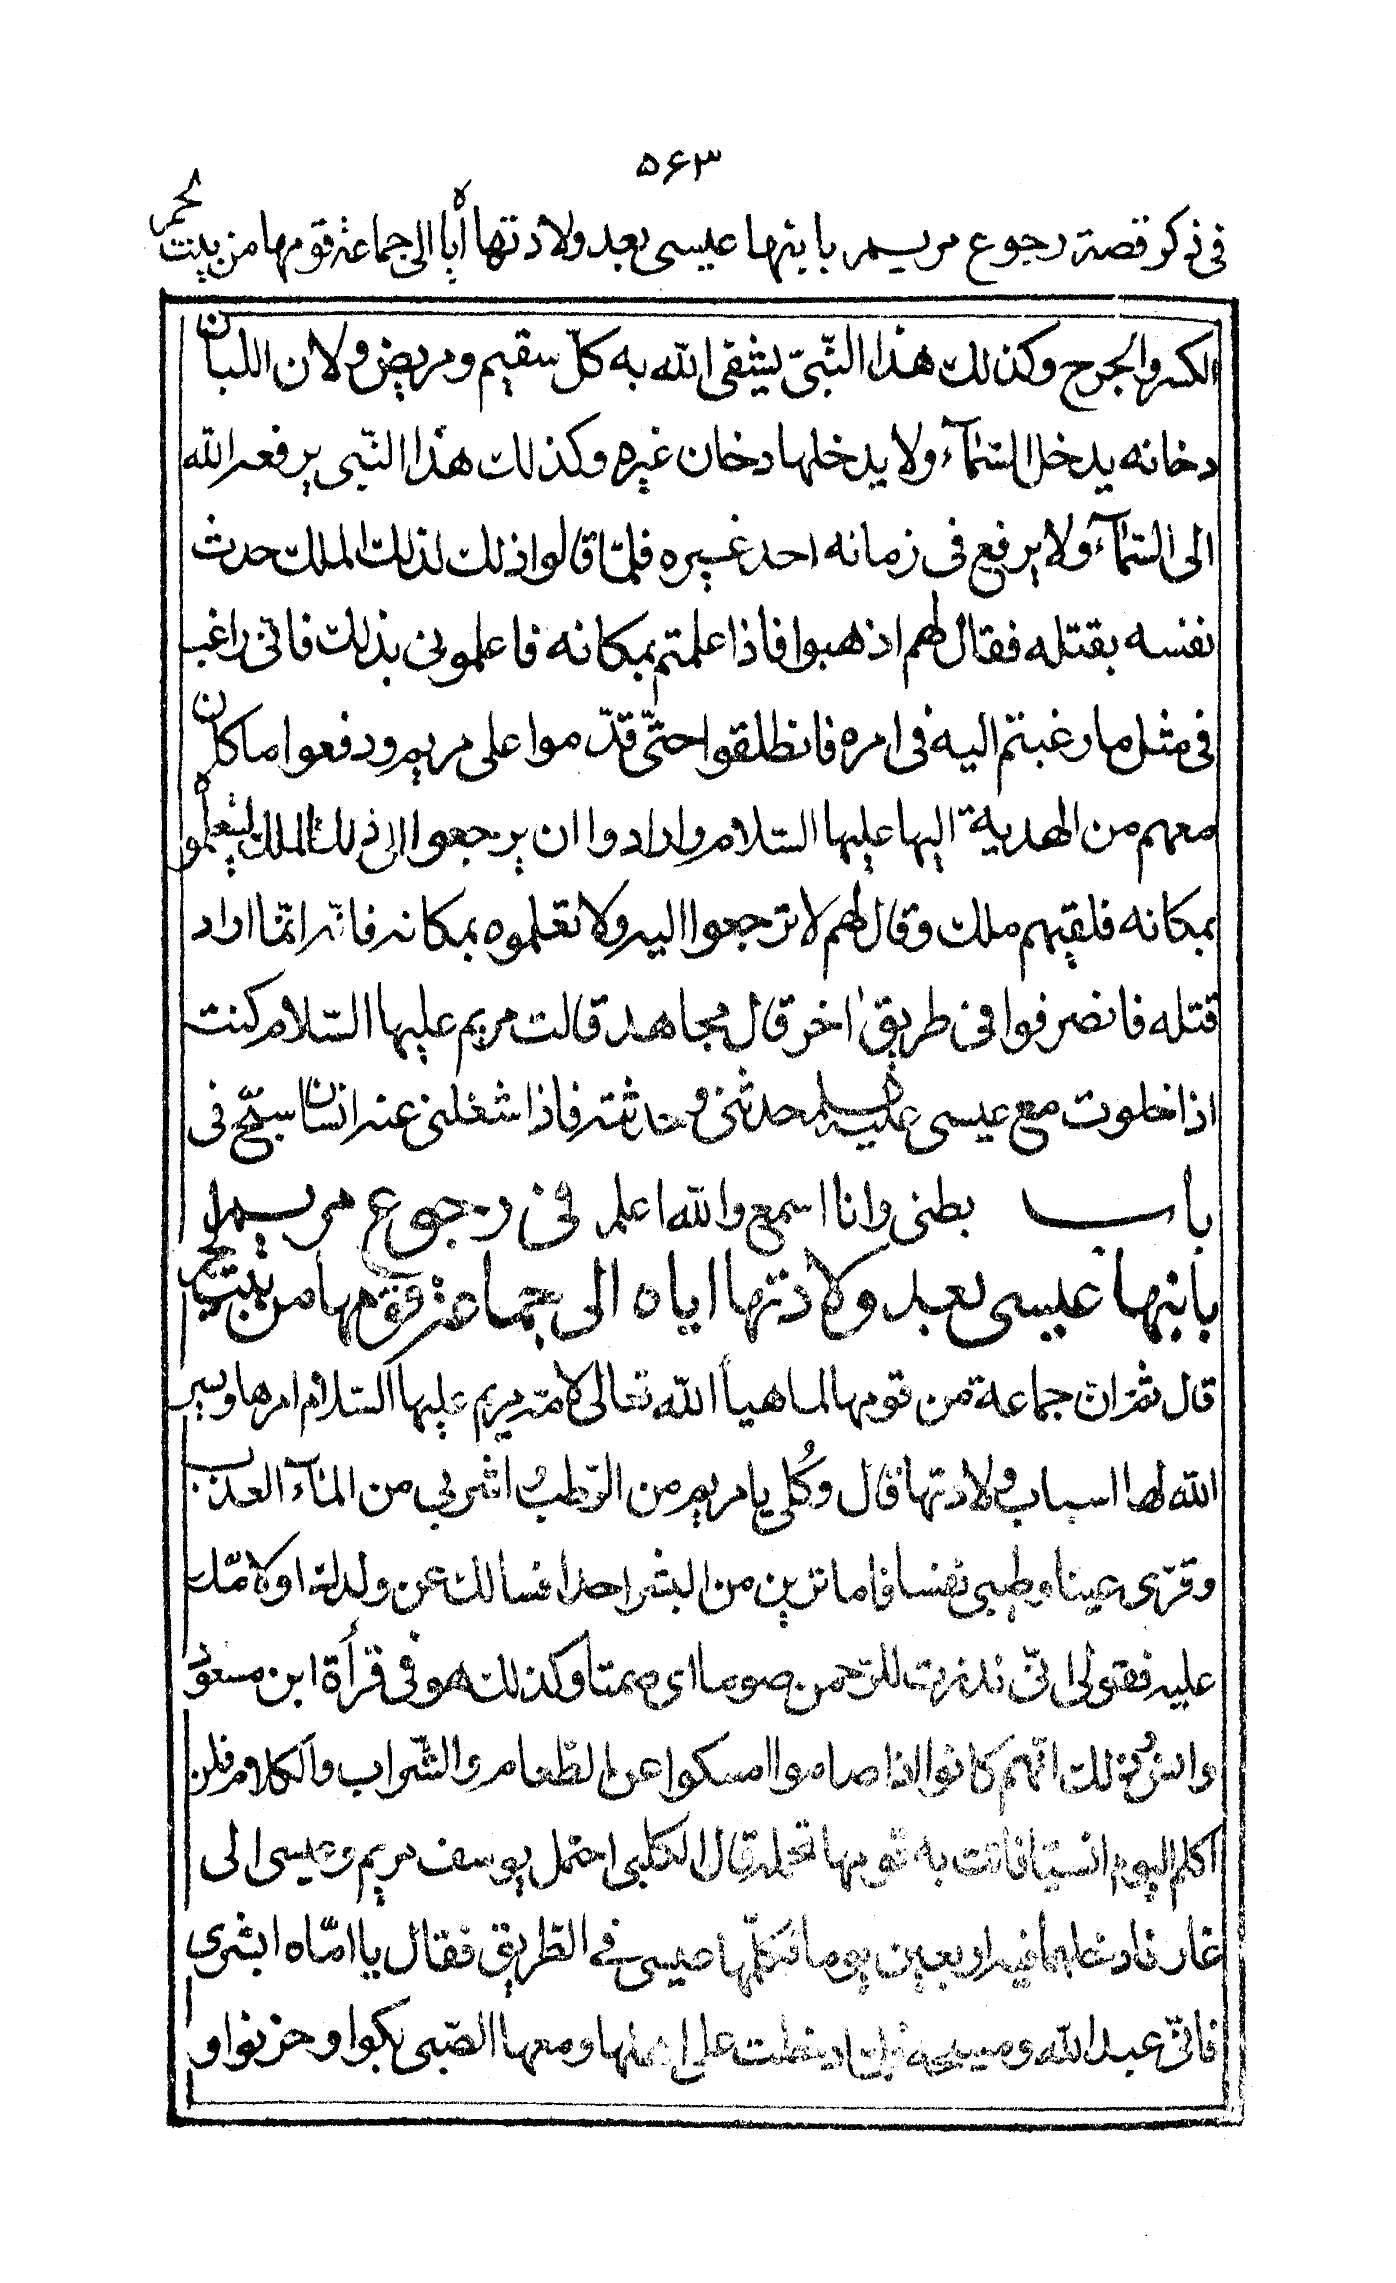 ۵۶۳
فی ذکر قصة رجوع مریم بابنها عیسی بعد ولادتها اياه الی جماعة قومها من بیت لحم
الکسر والجرح وکذلك هذا النّبیّ یشفی الله به کلّ سقیم و مریض ولان اللبان
دخانه یدخل السّمآء ولا یدخلها دخان غیره وکذلك هذا النّبی یرفعه الله
الی السّمآء ولا یرفع فی زمانه احد غیره فلمّا قالوا ذلك لذلك الملك حدث
نفسه بقتله فقال لهم اذهبوا فاذا علمتم بمکانه فاعلمونی بذلك فانّی راغب
فی مثل ما رغبتم الیه فی امره فانطلقوا حتّی قدّموا علی مریم ودفعوا ما کان
معهم من الهدیة الیها علیها السّلام وارادوا ان یرجعوا الی ذلك الملك لیعلموه
بمکانه فلقیهم ملك وقال لهم لا ترجعوا الیه ولا تعلموه بمکانه فانّه انّما اراد
قتله فانصرفوا فی طریق اخر قال مجاهد قالت مریم علیها السّلام کنت
اذا خلوت مع عیسی علیه السلم حدثنی و حدثته فاذا شغلنی عنه انسان سبّح فی
باب بطنی وانا اسمع والله اعلم فی رجوع مریم
بابنها عیسی بعد ولادتها ایاه الی جماعة قومها من بیت لحم
قال ثمّ انّ جماعة من قومها لما هیأ الله تعالی لامته مریم علیها السّلام امرها ویسر
الله لها اسباب ولادتها قال وکُلی یا مریم من الرّطب واشربی من المآء العذب
وقرّی عینا وطیبی نفسا فاما ترین من البشر احدا فسالك عن ولدك او لامّك
علیه فقولی انّی نذرت للرّحمن صوما ای صمتا وکذلك هو فی قرأة ابن مسعود
وانس وذلك انّهم کانوا اذا صاموا امسکوا عن الطّعام والشّراب والکلام فلن
اکلم الیوم انسیّا فاتت به قومها تحمله قال الکلبی احتمل یوسف مریم وعیسی الی
غار فادخلهما فیه اربعین یوما فکلّمها عیسی فی الطّریق فقال یا امّاه ابشری
فانّی عبد الله ومسیحه فلمّا دخلت علی اهلها ومعها الصّبی بکوا وحزنوا و